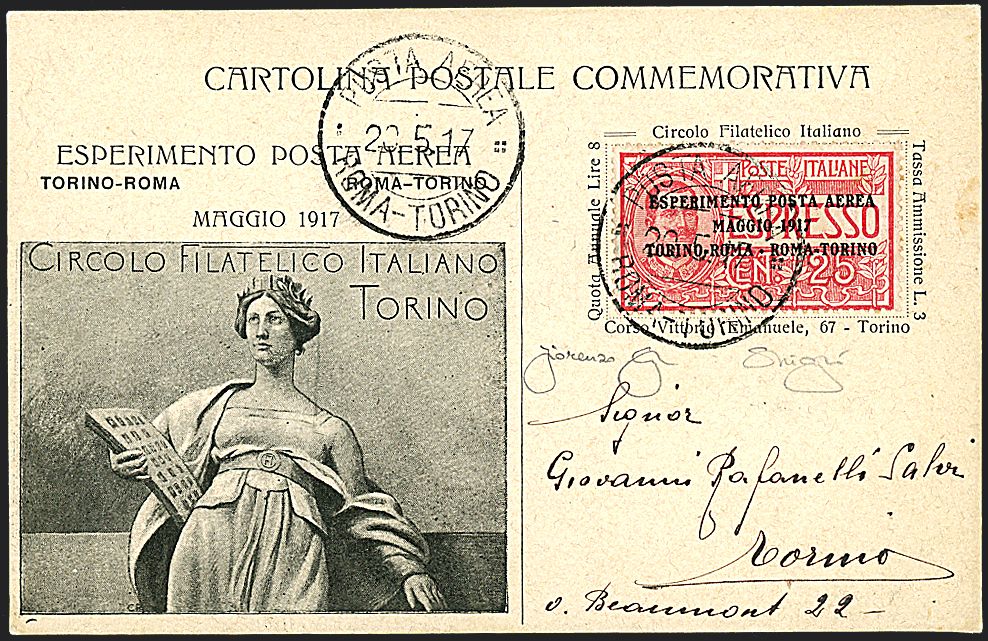 CARTOLINA POSTALE COMMEMORATIVA
POSTA AEREA
20.5.17
ROMA-TORINO
ESPERIMENTO POSTA AEREA
TORINO-ROMA ROMA-TORINO
MAGGIO 1917
CIRCOLO FILATELICO ITALIANO
TORINO
Circolo Filatelico Italiano
Quota Annuale Lire 8
Tassa Ammissione L. 3
Corso Vittorio Emanuele, 67 - Torino
POSTE ITALIANE
ESPRESSO
CEN. 25
ESPERIMENTO POSTA AEREA
MAGGIO 1917
TORINO-ROMA - ROMA-TORINO
POSTA AEREA
ROMA-TORINO
Signor
Giovanni Rafanelli Salvi
Torino
v. Beaumont 22 -